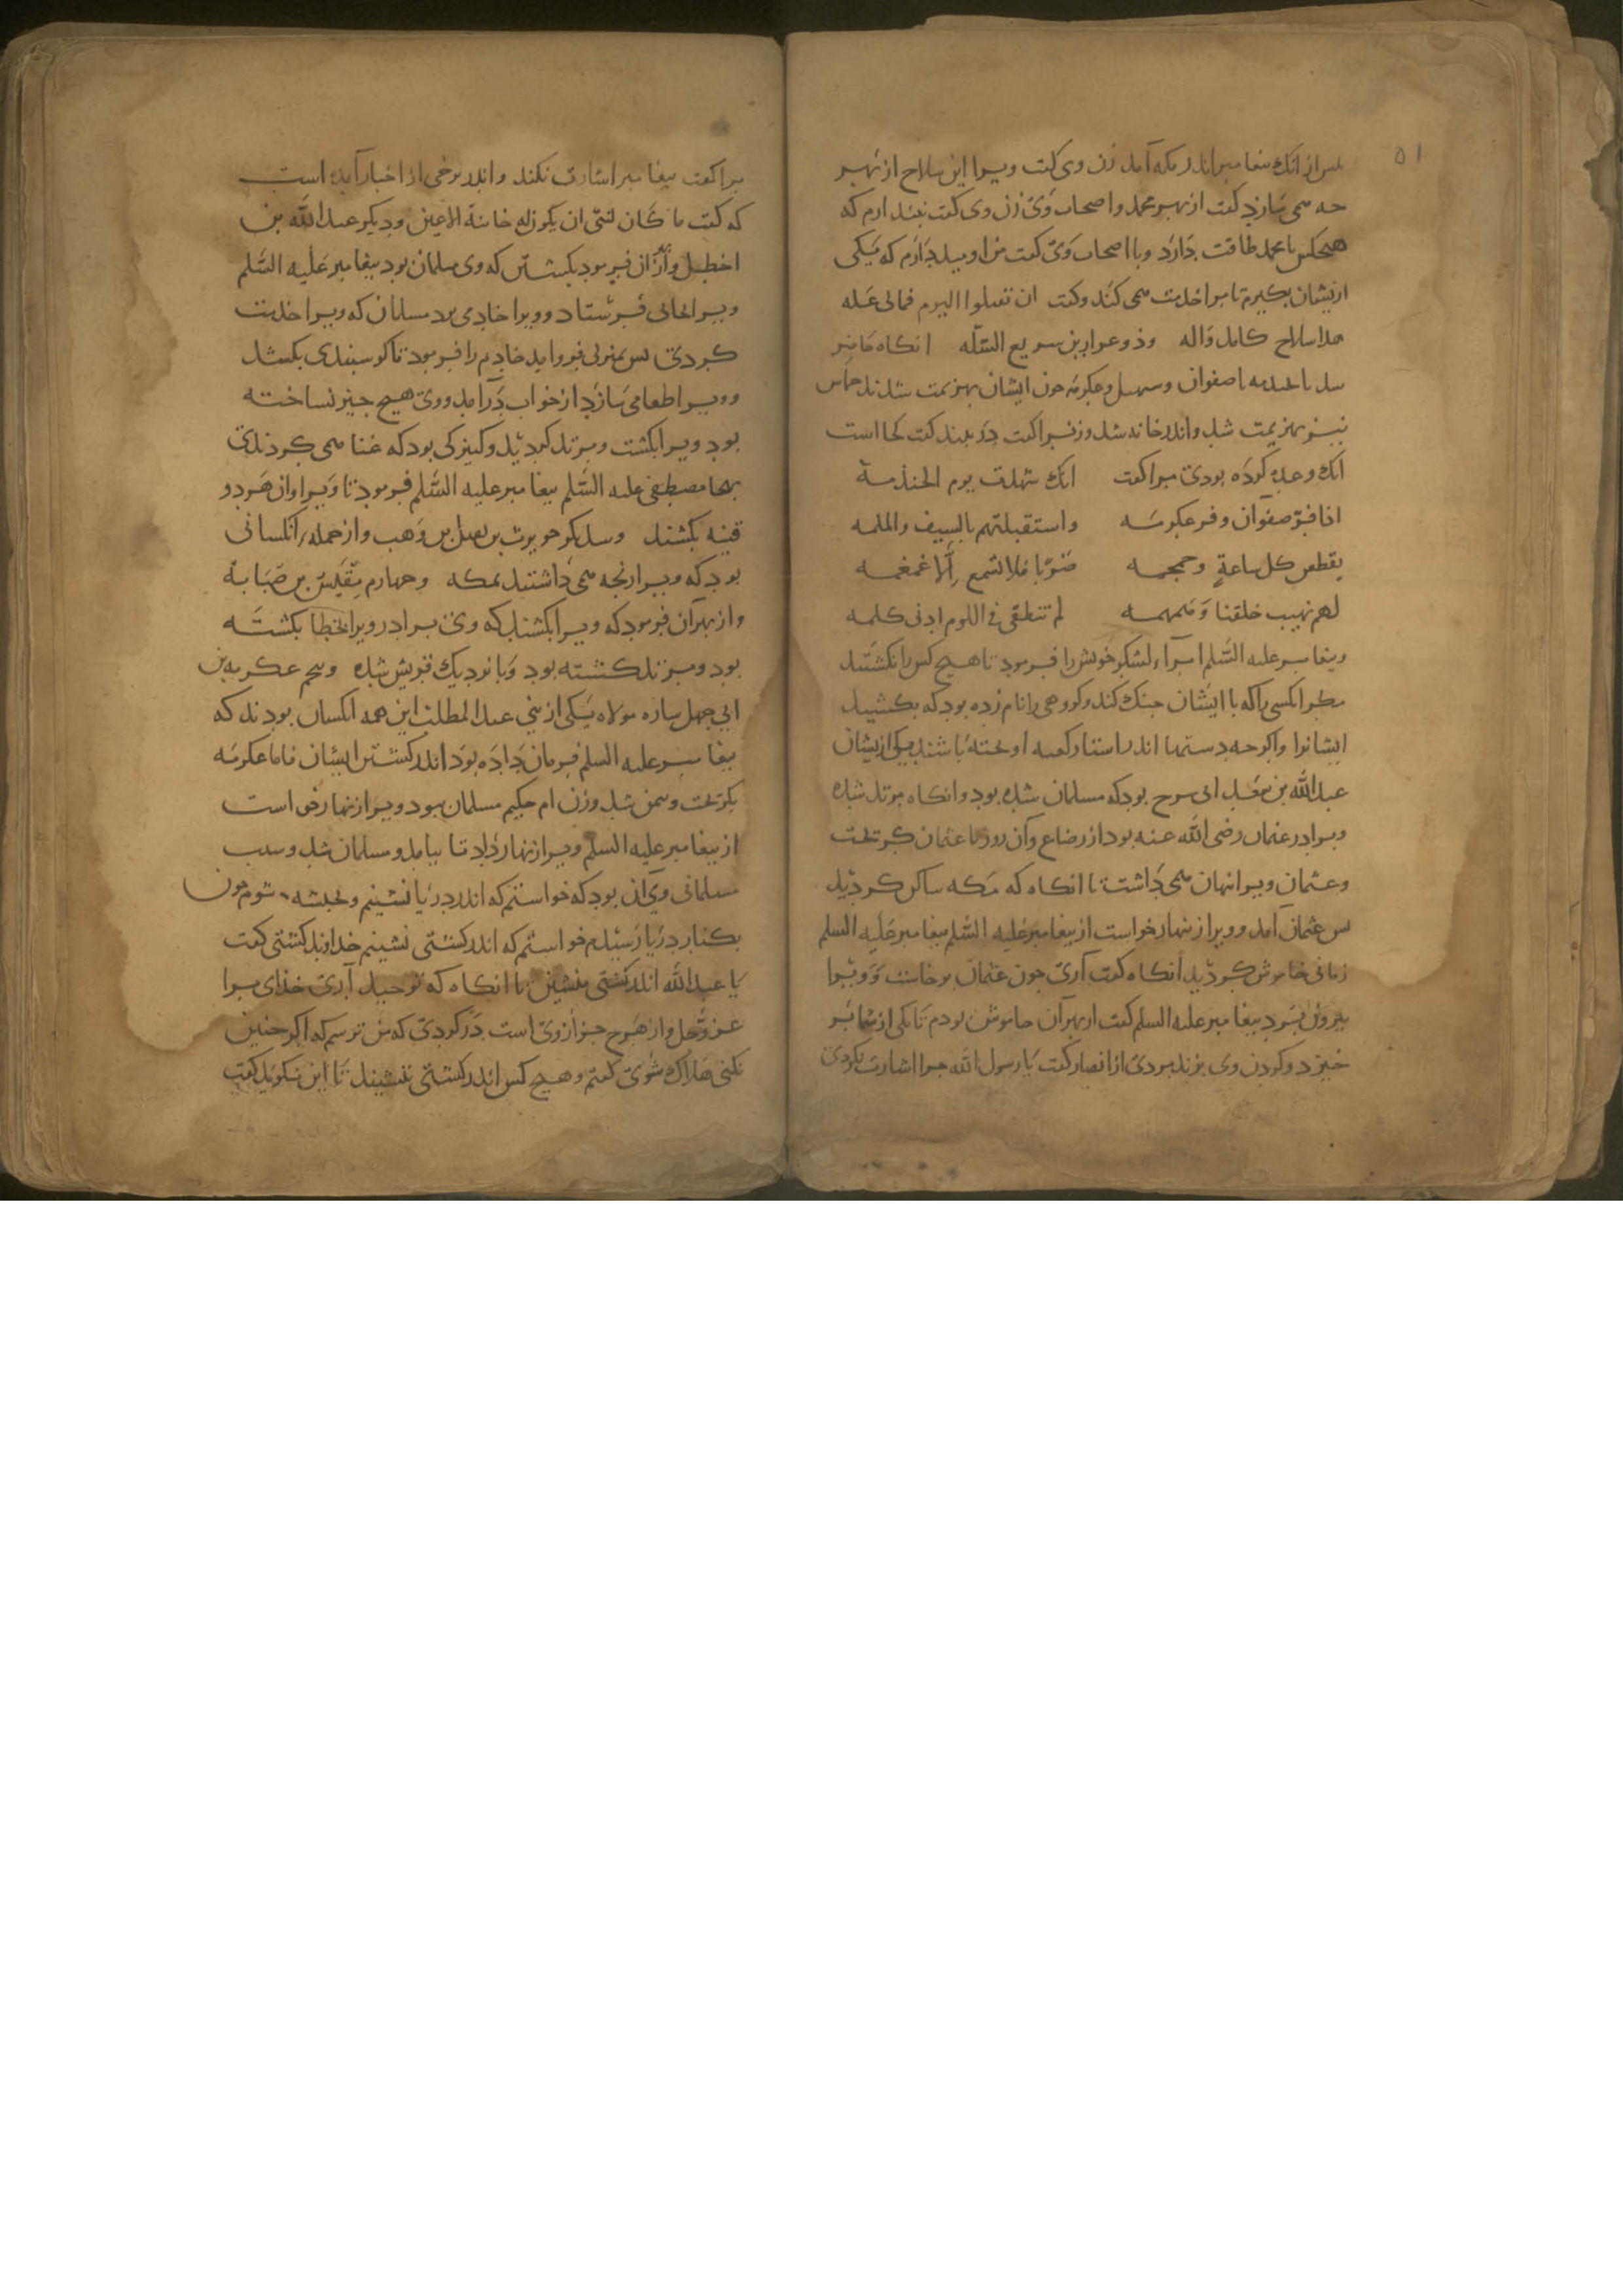 ۵۱
پس از انک پیغامبر اندر مکه آمد زن وی گفت ویرا این سلاح از بهر
چه می سازد گفت از بهر محمد واصحاب وی زن وی گفت نپندارم که
هیچکس با محمد طاقت دارد وبا اصحاب وی گفت من اومید دارم که یکی
ازیشان بگیرم تا مرا خدمت همی کند وگفت ان تقبلوا الیوم فمالی عله
هذا سلاح کامل واله وذو غرارین سریع السله انگاه حاضر
شد با صفوان وسهیل وعکرمه چون ایشان بهزیمت شدند حماس
نیز بهزیمت شد واندر خانه شد وزنرا گفت در ببند گفت کجا است
انک وعده کرده بودی مرا گفت انک شهدت یوم الخندمة
اذا فر صفوان وفر عکرمه واستقبلتهم بالسیف والمسلمه
یقطعن کل ساعد وجمجمه ضربا فلا تسمع الا غمغمه
لهم نهیب خلفنا وهمهمه لم تنطقی فی اللوم ادنی کلمه
وپیغامبر علیه السلم امرآء لشکر خویش را فرمود تا هیچ کس را نکشتند
مگر انکسی را که با ایشان جنک کند وگروهی را نام زده بود که بکشید
ایشانرا واگرچه دستها اندر استار کعبه اوخته باشند یکی ازیشان
عبدالله بن سعد ابی سرح بود که مسلمان شده بود وانگاه مرتد شده
وبرادر عثمان رضی الله عنه بود از رضاع وآن روز با عثمان گریخت
وعثمان ویرا نهان همی داشت تا انگاه که مکه ساکن گردید
پس عثمان آمد وویرا زینهار خواست از پیغامبر علیه السلم پیغامبر علیه السلم
زمانی خاموش گردید انگاه گفت آری چون عثمان برخاست وویرا
بیرون برد پیغامبر علیه السلم گفت از بهر آن خاموش بودم تا یکی از شما بر
خیزد وگردن وی بزند مردی از انصار گفت یا رسول الله چرا اشارت نکردی
مرا گفت پیغامبر اشارت نکند واندر برخی از اخبار آمده است
که گفت ما کان لنبی ان یکون له خائنة الاعین ودیگر عبدالله بن
اخطل وازان فرمود بکشتن که وی مسلمان بود پیغامبر علیه السلم
ویرا بجائی فرستاد وویرا خادمی بود مسلمان که ویرا خدمت
کردی پس بمنزلی فروآمد خادم را فرمود تا گوسپندی بکشد
وویرا طعامی سازد از خواب درآمد ووی هیچ چیز نساخته
بود ویرا بکشت ومرتد گردید وکنیزکی بود که غنا همی کردندی
بهجا مصطفی علیه السلم پیغامبر علیه السلم فرمود تا ویرا واز هردو
قینه بکشند وسدیگر حویرث بن نفیل بن وهب واز جمله انکسانی
بود که ویرا رنجه همی داشتند بمکه وچهارم مقیس بن صبابة
واز بهر آن فرمود که ویرا بکشند که وی برادر ویرا بخطا بکشته
بود ومرتد گشته بود وبا نزدیک قریش شده وپنجم عکرمه بن
ابی جهل ساره مولاه یکی از بنی عبد المطلب این همه انکسان بودند که
پیغامبر علیه السلم فرمان داده بود اندر کشتن ایشان فاما عکرمه
بگریخت وبیمن شد وزن ام حکیم مسلمان ببود ویرا زینهار خواست
از پیغامبر علیه السلم ویرا زینهار داد تا بیامد ومسلمان شد وسبب
مسلمانی وی آن بود که خواستم که اندر دریا نشینم وبحبشه شوم چون
بکنار دریا رسیدم خواستم که اندر کشتی نشینم خداوند کشتی گفت
یا عبدالله اندر کشتی منشین تا انگاه که توحید آری خدای مرا
عز وجل واز هرچ جز از وی است در گردی که من ترسم که اگر چنین
نکنی هلاک شوی گفتم وهیچ کس اندر کشتی ننشیند تا این نگوید گفت